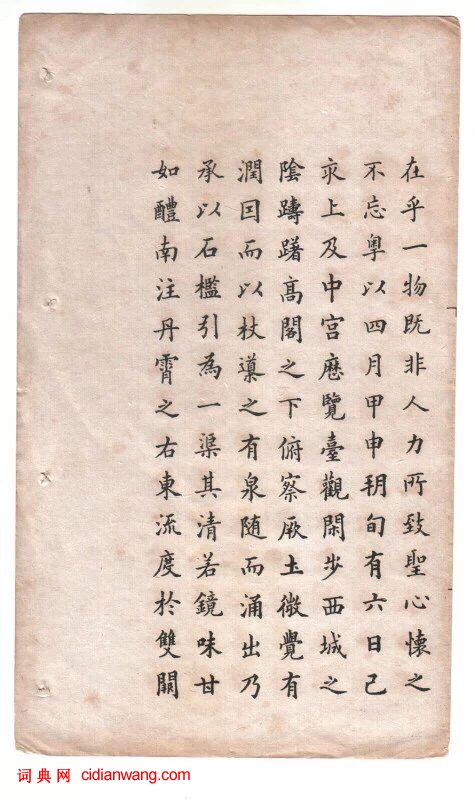 在乎一物既非人力所致聖心懷之
不忘粵以四月甲申朔旬有六日己
亥上及中宮歷覽臺觀閑步西城之
陰躊躇高閣之下俯察厥土微覺有
潤因而以杖導之有泉随而涌出乃
承以石檻引為一渠其清若鏡味甘
如醴南注丹霄之右東流度於雙闕
词典网 cidianwang.com